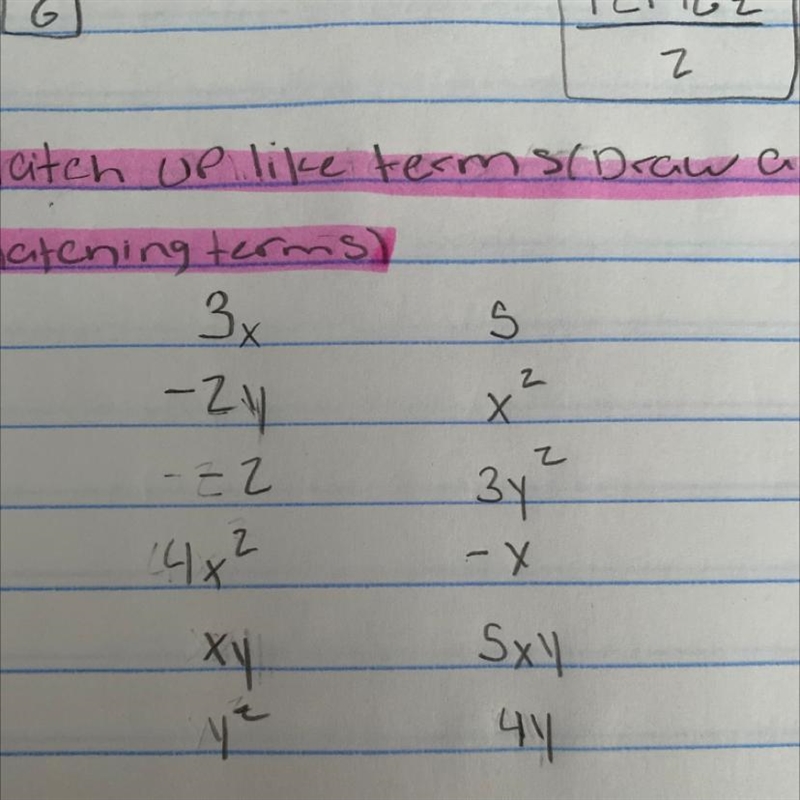 6
2
atch up like terms (Draw a
atching terms)
3x 5
-2y x²
-2 3y²
4x² -x
xy 5xy
y² 4y